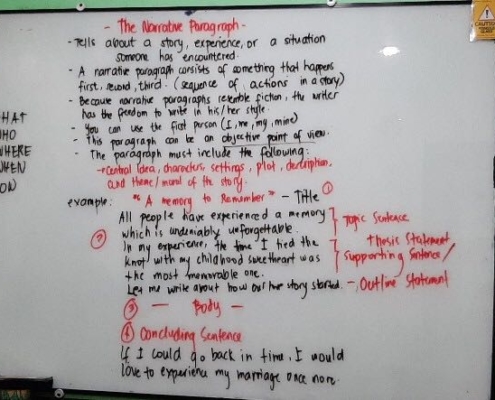 - The Narrative Paragraph -
- Tells about a story, experience, or a situation
someone has encountered.
- A narrative paragraph consists of something that happens
first, second, third. (sequence of actions in a story)
- Because narrative paragraphs resemble fiction, the writer
has the freedom to write in his/her style.
- You can use the first person (I, me, my, mine)
- This paragraph can be an objective point of view.
- The paragraph must include the following:
→ Central Idea, characters, settings, plot, description,
and theme/moral of the story.
example: "A memory to Remember" - Title ①
All people have experienced a memory
which is undeniably unforgettable. Topic Sentence
②
In my experience, the time I tied the
knot with my childhood sweetheart was
the most memorable one.
Thesis Statement
Supporting Sentence/
Let me write about how our story started. - Outline Statement
③ — Body —
④ Concluding Sentence
If I could go back in time, I would
love to experience my marriage once more.
HAT
HO
WHERE
WHEN
ON)
CAUTION